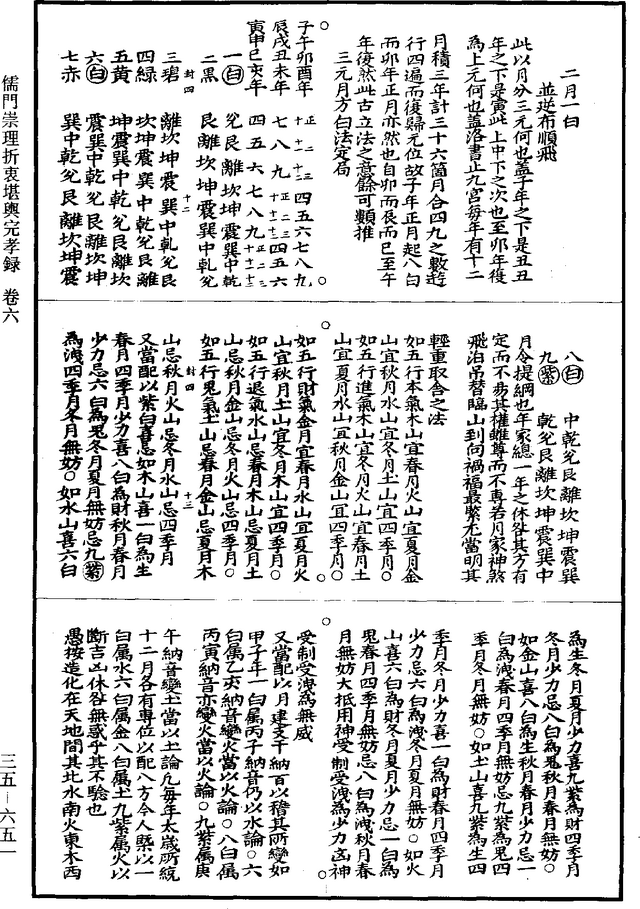 儒門崇理折衷堪輿完孝録　卷六
三五－六五一
二月一白
並逆布順飛
此以月分三元何也蓋子年之下是丑丑
年之下是寅此上中下之次也至卯年復
為上元何也蓋洛書止九宮每年有十二
月積三年計三十六箇月合四九之數遊
行四遍而復歸元位故子年正月起八白
而卯年正月亦然也自卯而辰而巳至午
年復然此古立法之意餘可類推
三元月方白法定局
子午卯酉年　正二三四五六七八九
十十一十二
辰戌丑未年　七八九正二三四五六
十十一十二
寅申巳亥年　四五六七八九正二三
十十一十二
一白　兊艮離坎坤震巽中乾
二黒　艮離坎坤震巽中乾兊
封四　十二
三碧　離坎坤震巽中乾兊艮
四綠　坎坤震巽中乾兊艮離
五黃　坤震巽中乾兊艮離坎
六白　震巽中乾兊艮離坎坤
七赤　巽中乾兊艮離坎坤震
八白　中乾兊艮離坎坤震巽
九紫　乾兊艮離坎坤震巽中
月令提綱也年家總一年之休咎其方有
定而不易其權雖尊而不專若月家神煞
飛泊吊替臨山到向禍福最緊尤當明其
輕重取舍之法
如五行本氣木山宜春月火山宜夏月金
山宜秋月水山宜冬月土山宜四季月○
如五行進氣木山宜冬月火山宜春月土
山宜夏月水山宜秋月金山宜四季月○
如五行財氣金月宜春月水山宜夏月火
山宜秋月土山宜冬月木山宜四季月○
如五行退氣水山忌春月木山忌夏月土
山忌秋月金山忌冬月火山忌四季月○
如五行鬼氣土山忌春月金山忌夏月木
封四　十三
山忌秋月火山忌冬月水山忌四季月
又當配以紫白喜忌如木山喜一白為生
春月四季月少力喜八白為財秋月春月
少力忌六白為鬼冬月夏月無妨忌九紫
為洩四季月冬月無妨○如水山喜六白
為生冬月夏月少力喜九紫為財四季月
冬月少力忌八白為鬼秋月春月無妨○
如金山喜八白為生秋月春月少力忌一
白為洩春月四季月無妨忌九紫為鬼四
季月冬月無妨○如土山喜九紫為生四
季月冬月少力喜一白為財春月四季月
少力忌六白為洩冬月夏月無妨○如火
山喜六白為財冬月夏月少力忌一白為
鬼春月四季月無妨忌八白為洩秋月春
月無妨大抵用神受制受洩為少力凶神
受制受洩為無威
又當配以月建支干納百以稽其所變如
甲子年一白屬丙子納音仍以水論○六
白屬乙亥納音變火當以火論○八白屬
丙寅納音亦變火當以火論○九紫屬庚
午納音變土當以土論凡毎年太歲所統
十二月各有專位以配八方今人槩以一
白屬水六白屬金八白屬土九紫屬火以
斷吉凶休咎無惑乎其不驗也
愚按造化在天地間其北水南火東木西